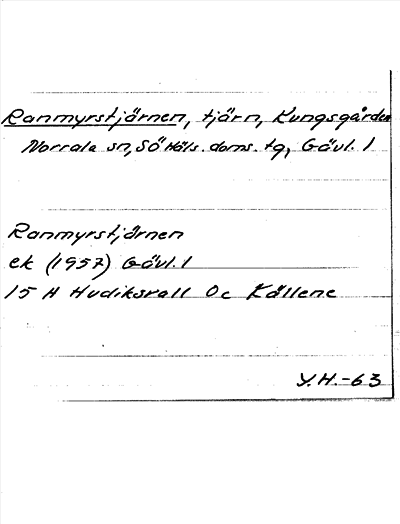 Ranmyrstjärnen, tjärn, Kungsgården
Norrala sn, Sö Häls. doms. tg, Gävl. l
Ranmyrstjärnen
ek (1957) Gävl. l
15 H Hudiksvall Oc Källene
Y.H.-63